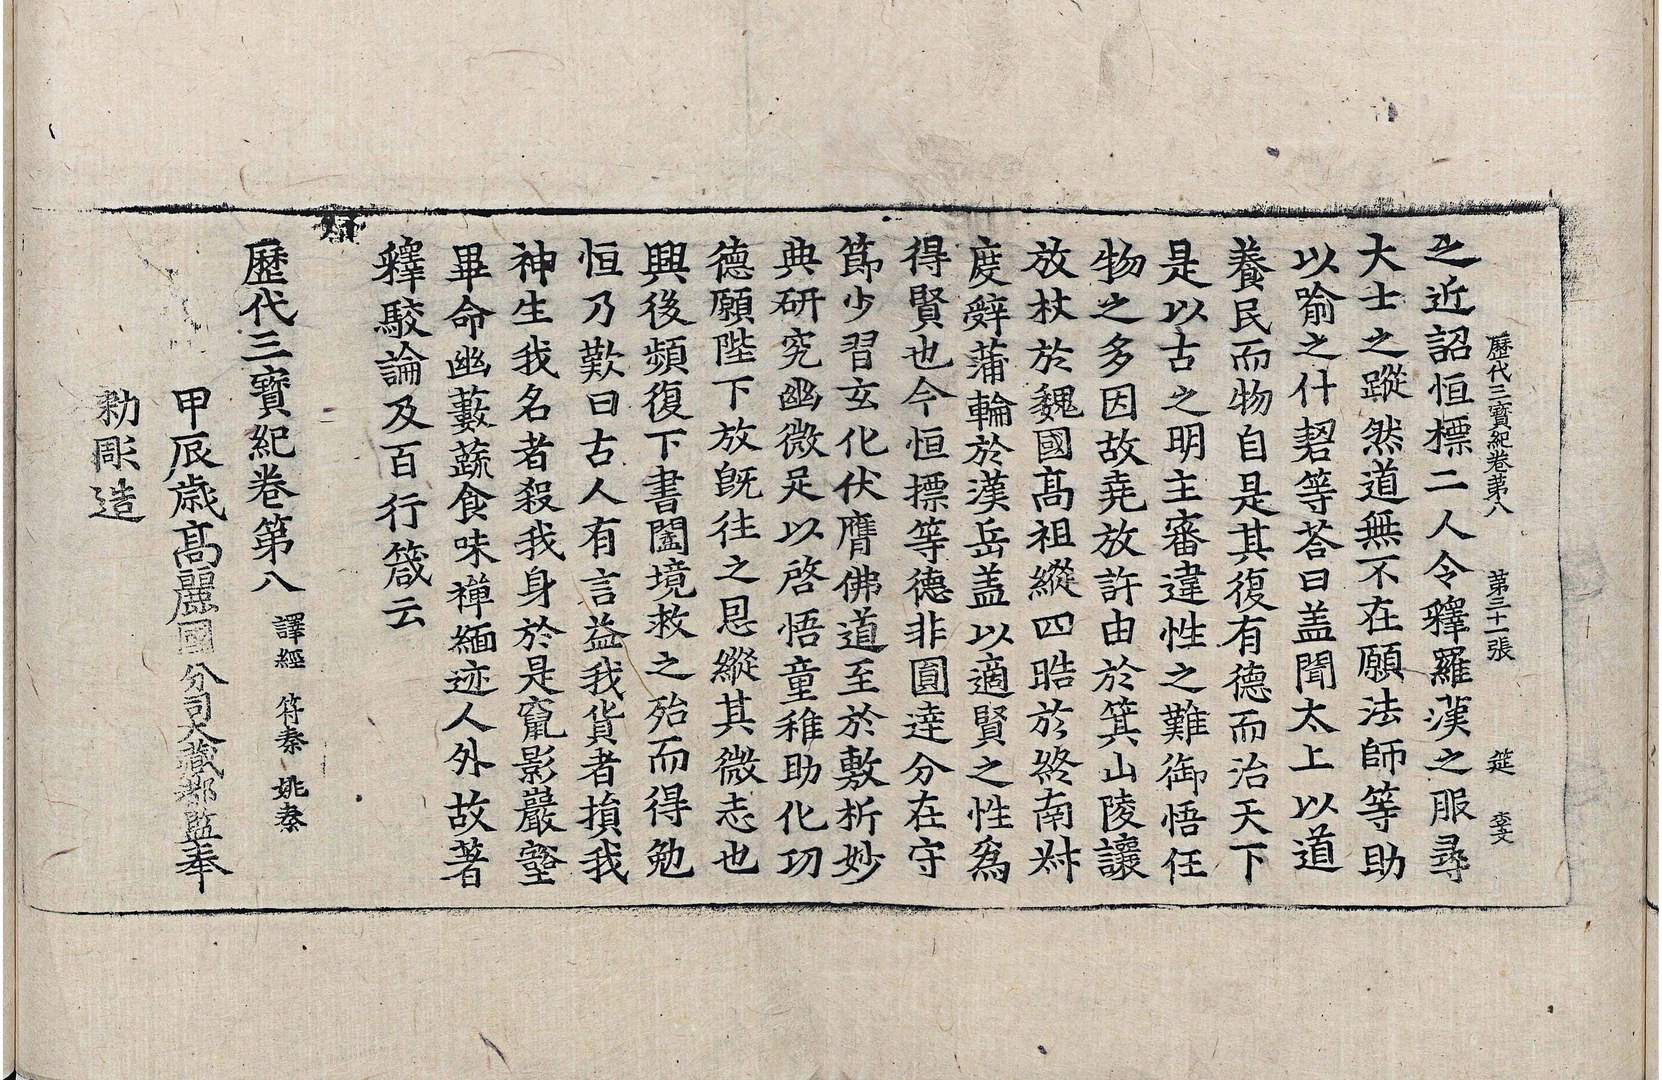 歷代三寶紀卷第八　第三十一張　筵　李文
之近詔恒標二人令釋羅漢之服尋
大士之蹤然道無不在願法師等助
以喻之什䂮等荅曰盖聞太上以道
養民而物自是其復有德而治天下
是以古之明主審違性之難御悟任
物之多因故堯放許由於箕山陵讓
放杖於魏國髙祖縱四晧於終南叔
度辝蒲輪於漢岳盖以適賢之性爲
得賢也今恒摽等德非圓逹分在守
節少習玄化伏膺佛道至於敷析妙
典研究幽微足以啓悟童稚助化功
德願陛下放旣往之恩縱其微志也
興後頻復下書闔境救之殆而得勉
恒乃歎曰古人有言益我貨者損我
神生我名者殺我身於是竄影巖壑
畢命幽藪蔬食味禪緬迹人外故著
釋駮論及百行箴云
歷代三寶紀卷第八　譯經　符秦　姚秦
甲辰歲髙麗國分司大藏都監奉
勅彫造